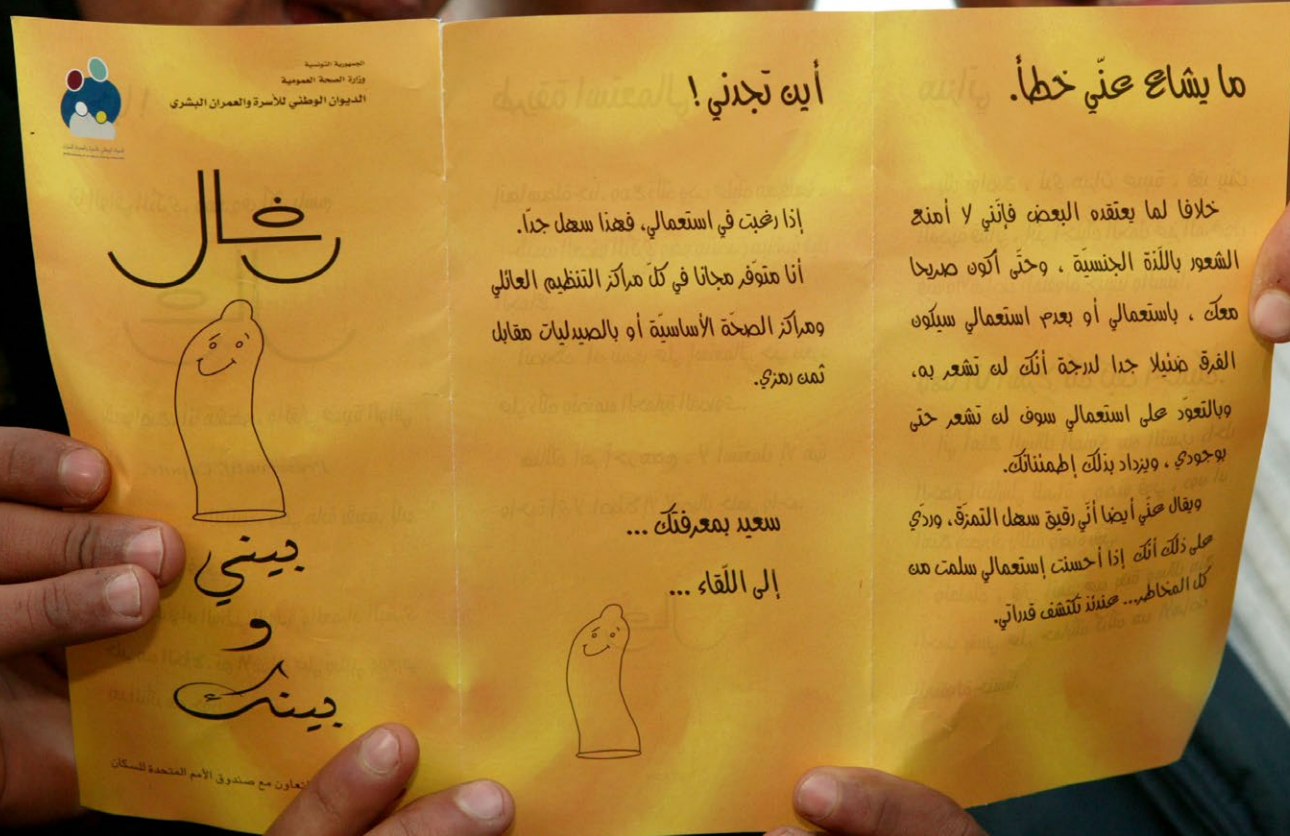 ما يشاع عنّي خطأ.
خلافا لما يعتقده البعض فإنّني لا أمنع
الشعور باللّذة الجنسيّة ، وحتّى أكون صريحا
معك ، باستعمالي أو بعدم استعمالي سيكون
الفرق ضئيلا جدا لدرجة أنّك لن تشعر به،
وبالتعوّد على استعمالي سوف لن تشعر حتى
بوجودي ، ويزداد بذلك إطمئنانك.
ويقال عنّي أيضا أنّي رقيق سهل التمزّق، وردّي
على ذلك أنّك إذا أحسنت إستعمالي سلمت من
كل المخاطر... عندئذ تكتشف قدراتي.
أين تجدني !
إذا رغبت في استعمالي، فهذا سهل جدّا.
أنا متوّفر مجانا في كلّ مراكز التنظيم العائلي
ومراكز الصحّة الأساسيّة أو بالصيدليات مقابل
ثمن رمزي.
سعيد بمعرفتك ...
إلى اللّقاء ...
الجمهورية التونسية
وزارة الصحة العمومية
الديوان الوطني للأسرة والعمران البشري
بيني
و
بينك
مع صندوق الأمم المتحدة للسكان